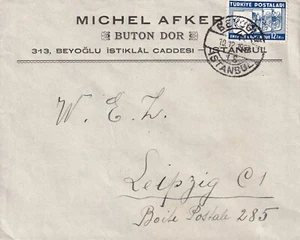 MICHEL AFKER
BUTON DOR
313, BEYOĞLU İSTİKLÂL CADDESİ — İSTANBUL
TÜRKİYE POSTALARI
BEYOĞLU
İSTANBUL
W. E. Z.
Leipzig C1
Boite Postale 285